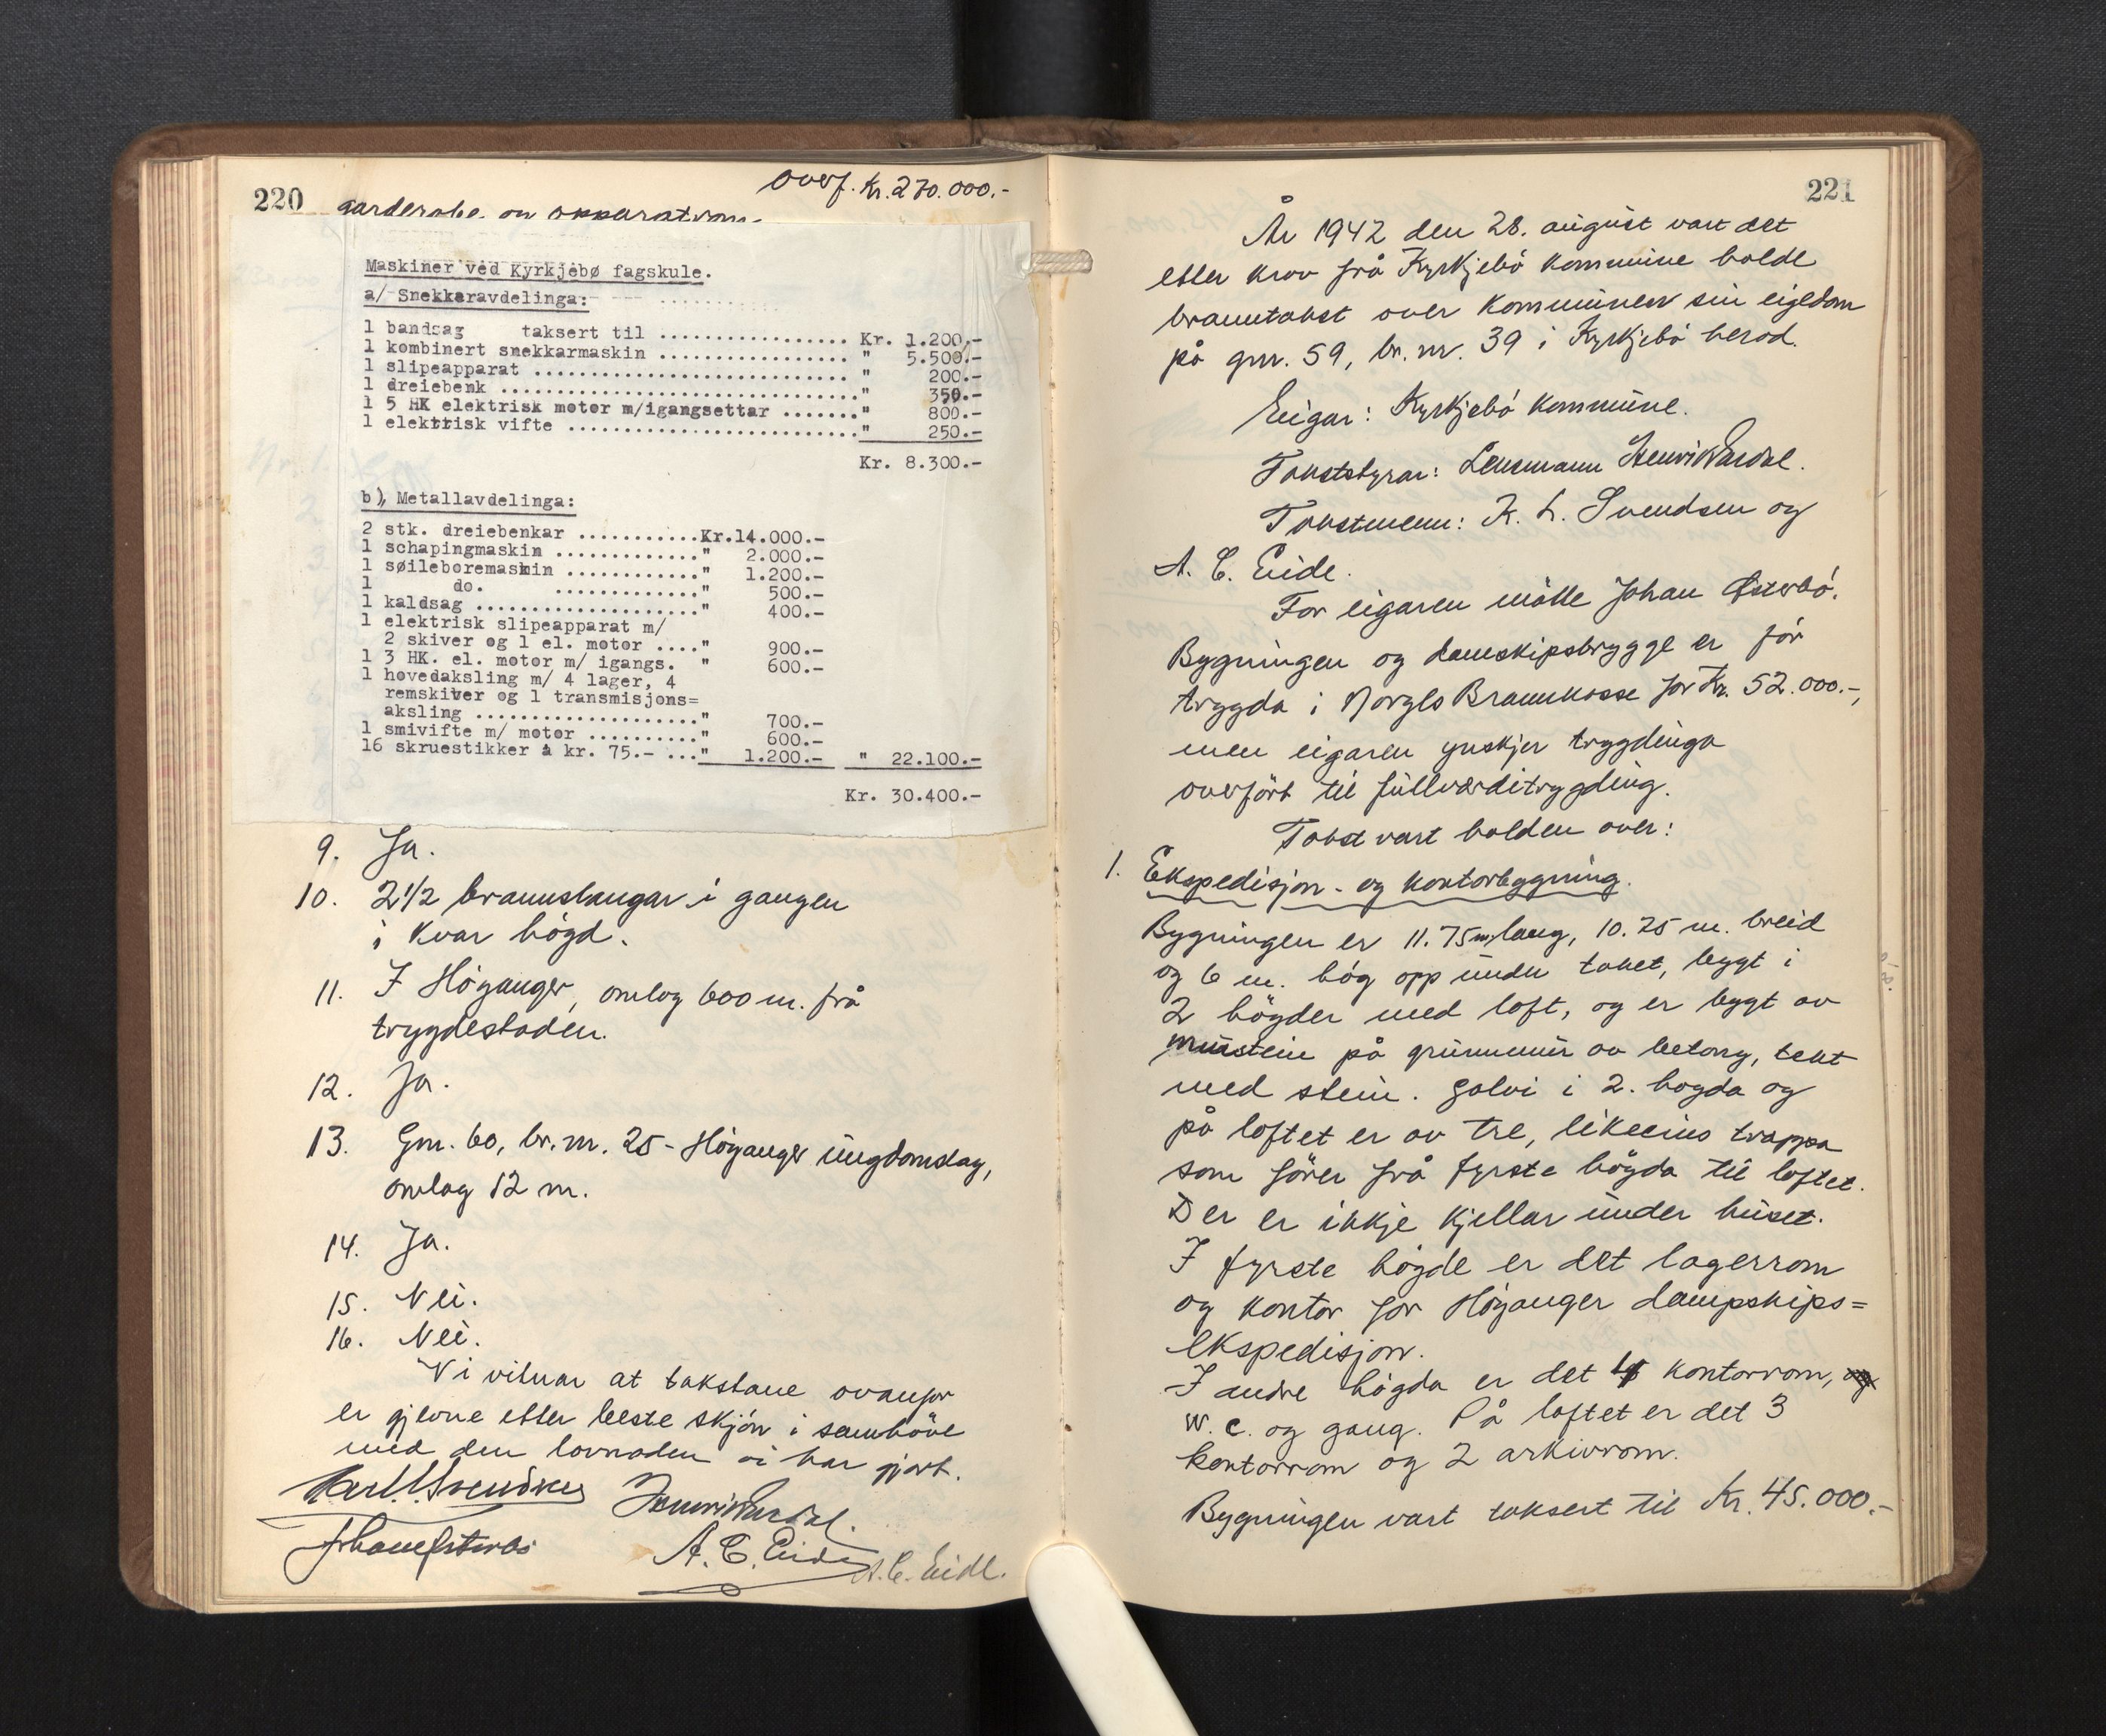 220
Overf. Kr. 270.000.-
garderobe og apparatrom.
Maskiner ved Kyrkjebø fagskule.
a/ Snekkeravdelinga:
1 bandsag taksert til .................. Kr. 1.200,-
1 kombinert snekkarmaskin .................. " 5.500.-
1 slipeapparat ............................. " 200.-
1 dreiebenk ................................." 350.-
1 5 HK elektrisk motor m/igangsettar ......." 800.-
1 elektrisk vifte ..........................." 250.-
Kr. 8.300.-
b), Metallavdelinga:
2 stk. dreiebenkar ...........Kr.14.000.-
1 schapingmaskin ............." 2.000.-
1 søileboremaskin ............" 1.200.-
1 do. ............." 500.-
1 kaldsag ...................." 400.-
1 elektrisk slipeapparat m/
2 skiver og 1 el. motor ...." 900.-
1 3 HK. el. motor m/ igangs. " 600.-
1 hovedaksling m/ 4 lager, 4
remskiver og 1 transmisjons=
aksling ...................." 700.-
1 smivifte m/ motor .........." 600.-
16 skruestikker à kr. 75.- ..." 1.200.- " 22.100.-
Kr. 30.400.-
9. Ja.
10. 2 1/2 brannslangar i gangen
i kvar høgd.
11. I Høyanger, omlag 600 m. frå
trygdestaden.
12. Ja.
13. Gnr. 60, br. nr. 25 - Høyanger ungdomslag,
omlag 12 m.
14. Ja.
15. Nei.
16. Nei.
Vi vitnar at takstane ovanfor
er gjevne etter beste skjön i samhöve
med den lovnaden vi har gjort.
Karl L. Svendsen Henrik Vardal.
Johan Østerbö A. C. Eide A. C. Eide.
221
År 1942 den 28. august vart det
etter krav frå Kyrkjebö kommune halde
branntakst over kommunen sin eigedom
på gnr. 59, br. nr. 39 i Kyrkjebö herad.
Eigar: Kyrkjebö kommune.
Takststyrar: Lensmann Henrik Vardal.
Takstmenn: K. L. Svendsen og
A. C. Eide.
For eigaren mötte Johan Østerbö.
Bygningen og dampskipsbrygge er för
trygda i Norges Brannkasse for Kr. 52.000.-,
men eigaren ynskjer trygdinga
overfört til fullverditrygding.
Takst vart halden over:
1. Ekspedisjon- og kontorbygning.
Bygningen er 11.75 m. lang, 10.25 m. breid
og 6 m. hög opp under taket, bygt i
2 högder med loft, og er bygt av
murstein på grunnmur av betong, tekt
med stein. Golvi i 2. hogda og
på loftet er av tre, likeeins trappa
som förer frå fyrste högda til loftet.
Der er ikkje kjellar under huset.
I fyrste högde er det lagerrom
og kontor for Høyanger dampskips=
ekspedisjon.
I andre högda er det 4 kontorrom, og
w. c. og gang. På loftet er det 3
kontorrom og 2 arkivrom.
Bygningen vart taksert til Kr. 45.000.-